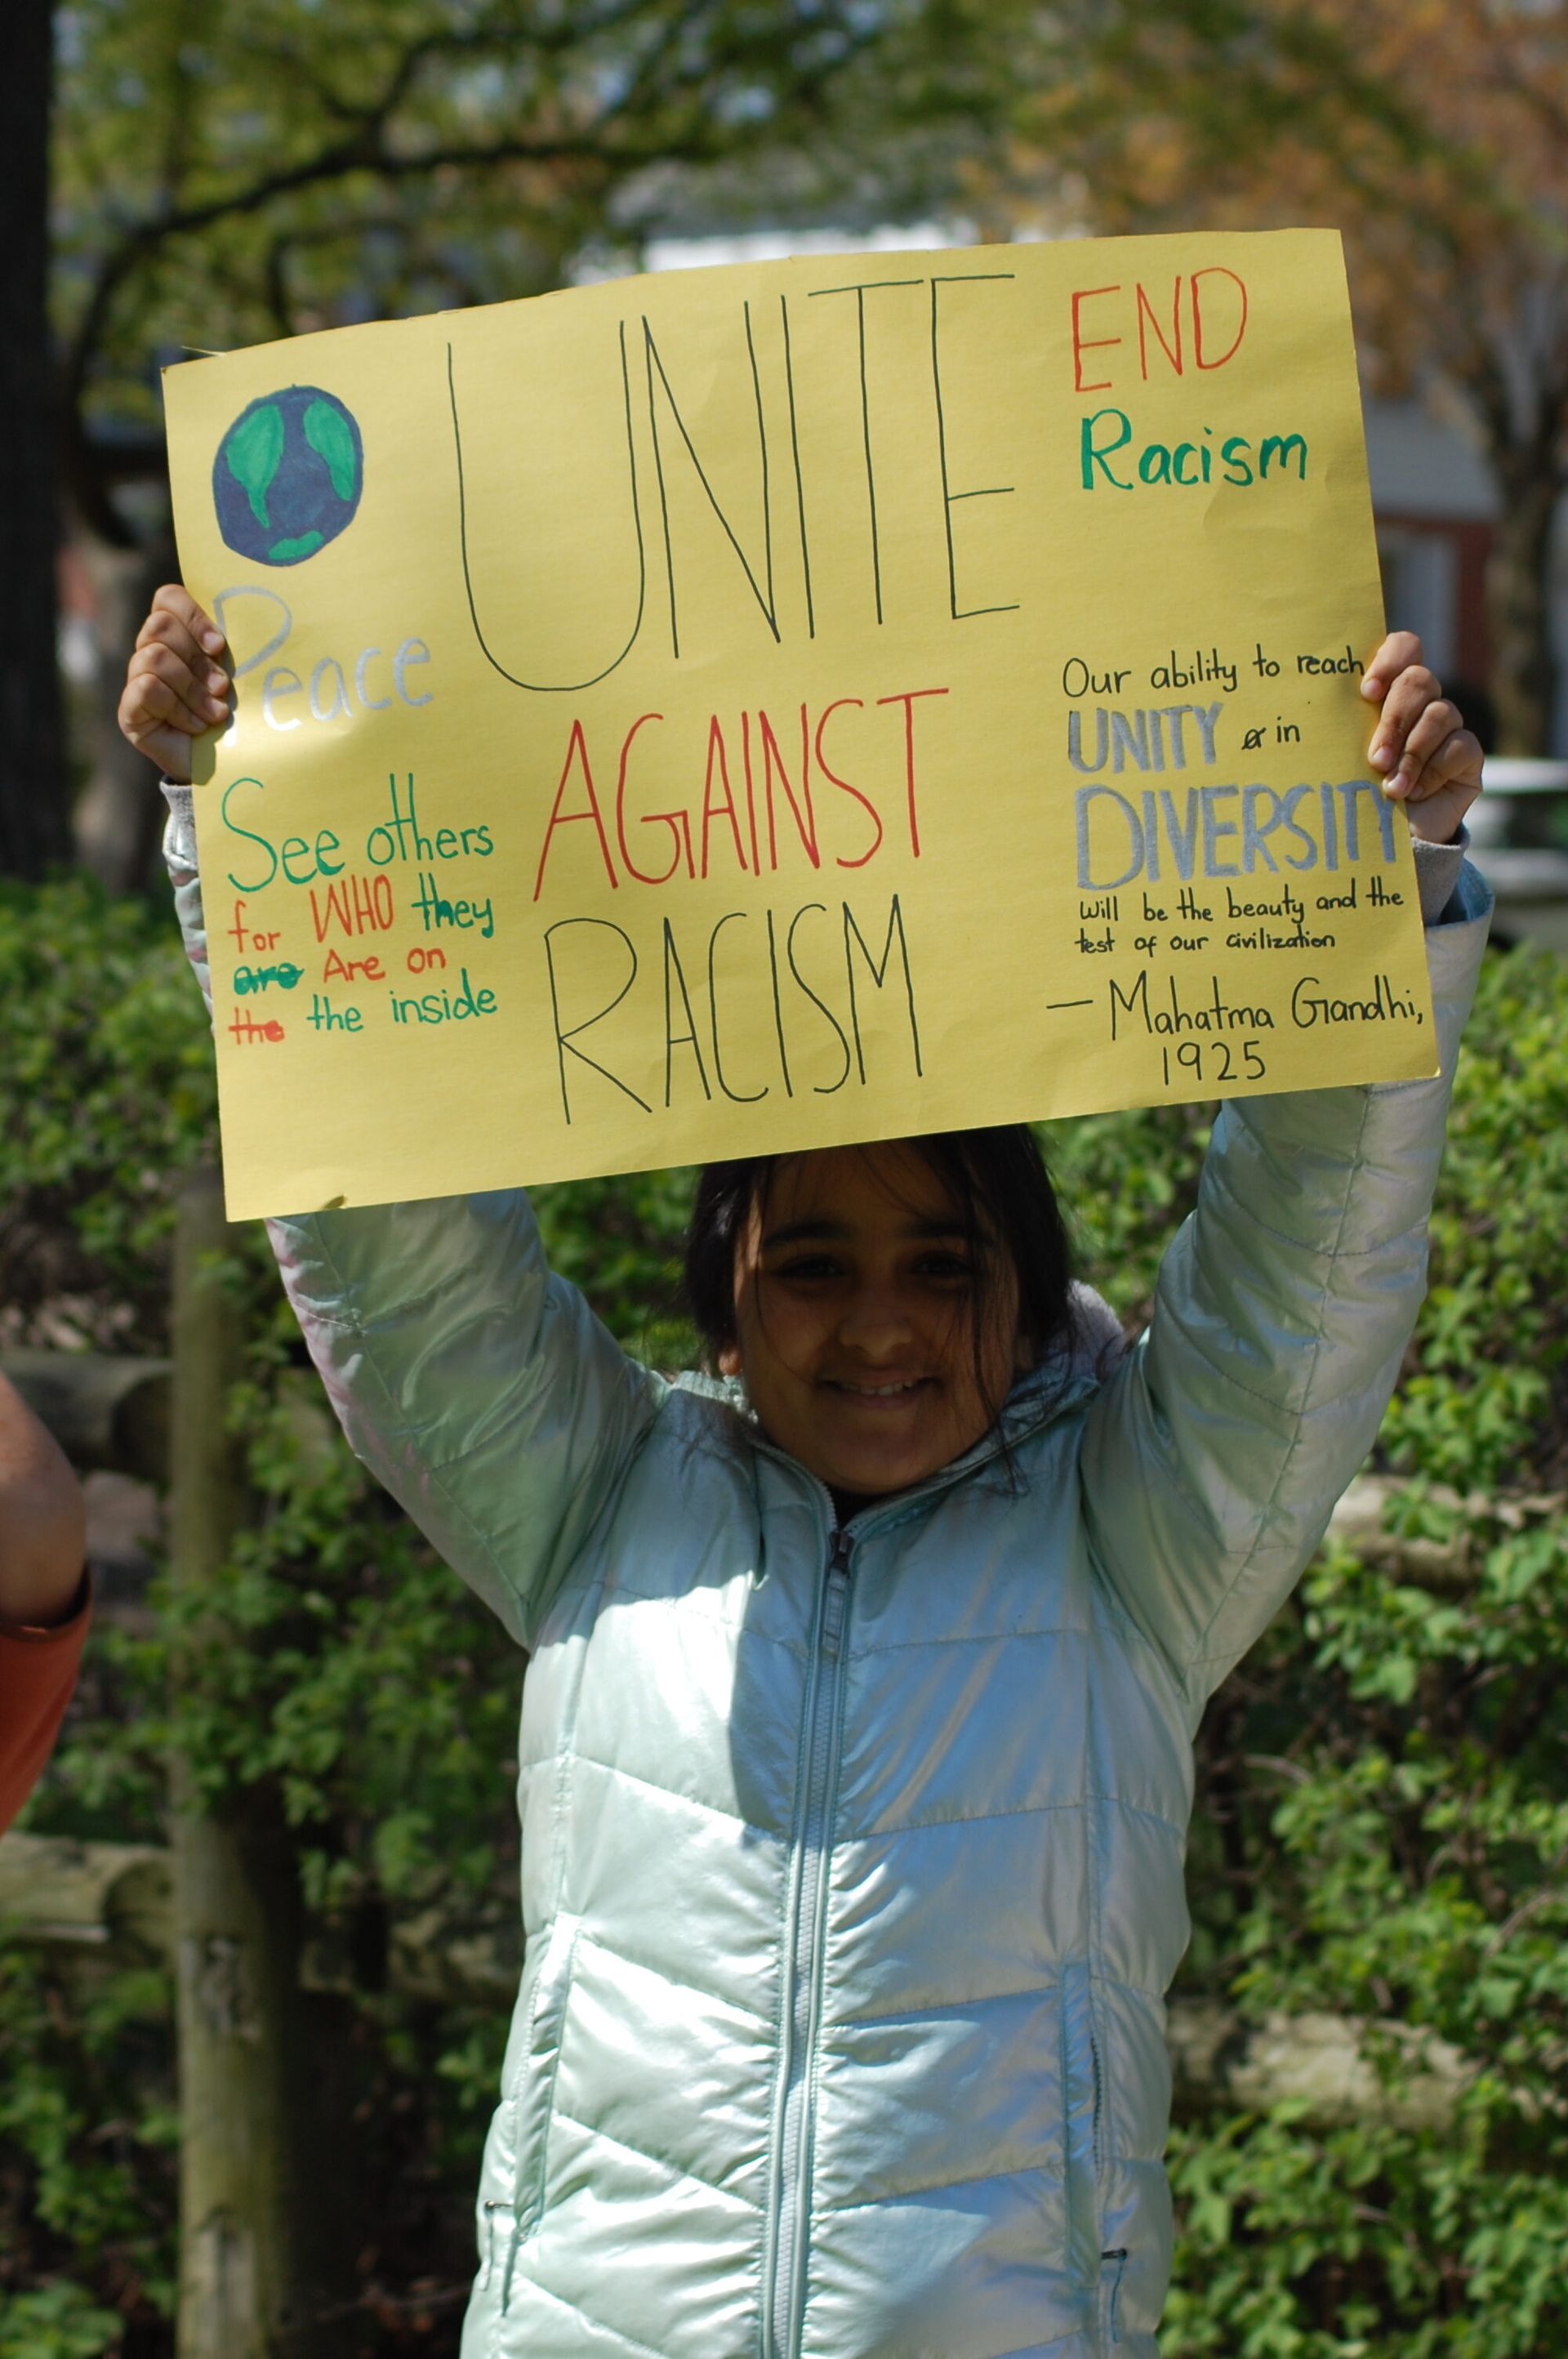 UNITE
AGAINST
RACISM
Peace
See others
for WHO they
are Are on
the the inside
END
Racism
Our ability to reach
UNITY or in
DIVERSITY
Will be the beauty and the
test of our civilization
— Mahatma Gandhi,
1925